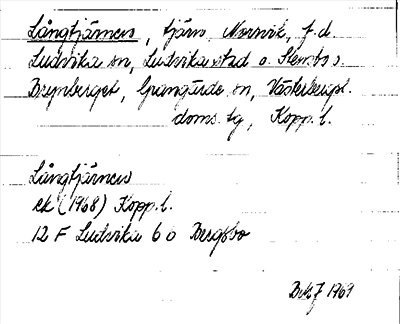 Långtjärnen, tjärn, Norrvik, f.d.
Ludvika sn, Ludvika stad o. Stensbo s.
Brynberget, Grangärde sn, Västerbergsl.
doms.tg, Kopp.l.
Långtjärnen
ek (1968) Kopp.l.
12 F Ludvika 6 o Bergsbo
1969